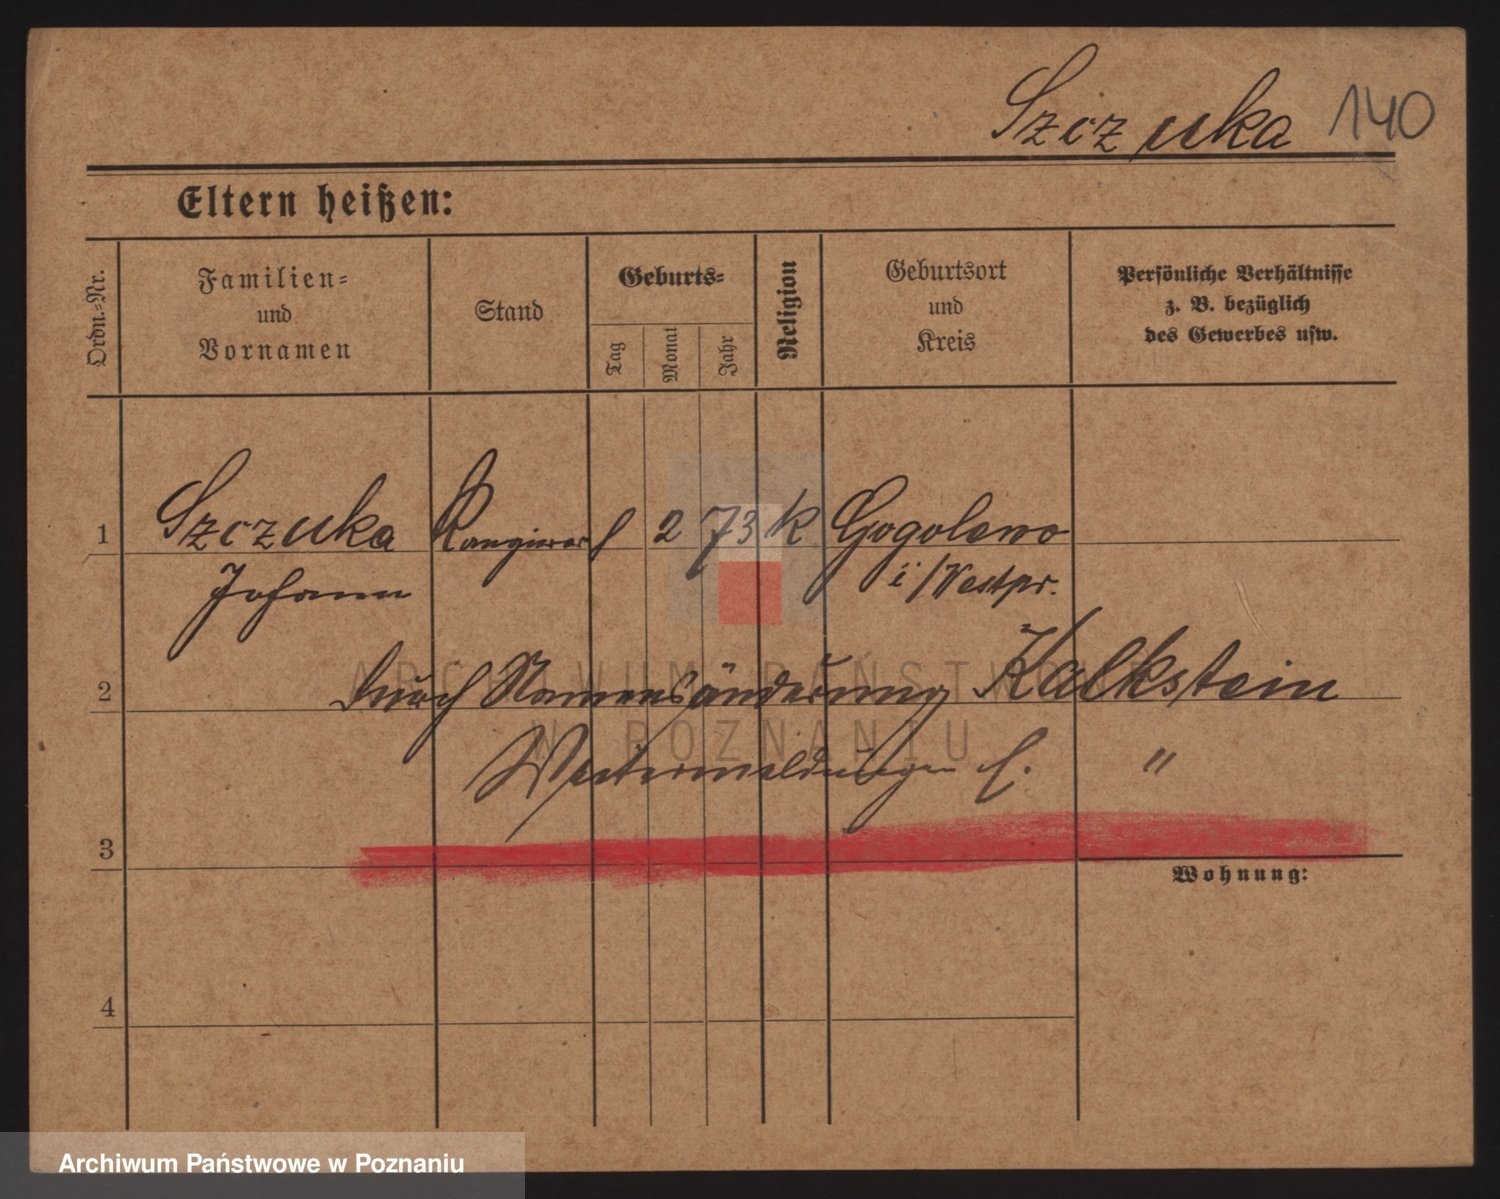 Szczuka 140
Eltern heißen:
Ordn.-Nr.
Familien-
und
Vornamen
Stand
Geburts-
Tag
Monat
Jahr
Religion
Geburtsort
und
Kreis
Persönliche Verhältnisse
z. B. bezüglich
des Gewerbes usw.
1 Szczuka 2 73 k Gogolewo
Johann i/Westpr.
2 durch Namensänderung Kalkstein
Weitermeldungen f. "
3
Wohnung:
4
ARCHIWUM PAŃSTWOWE
W POZNANIU
Archiwum Państwowe w Poznaniu